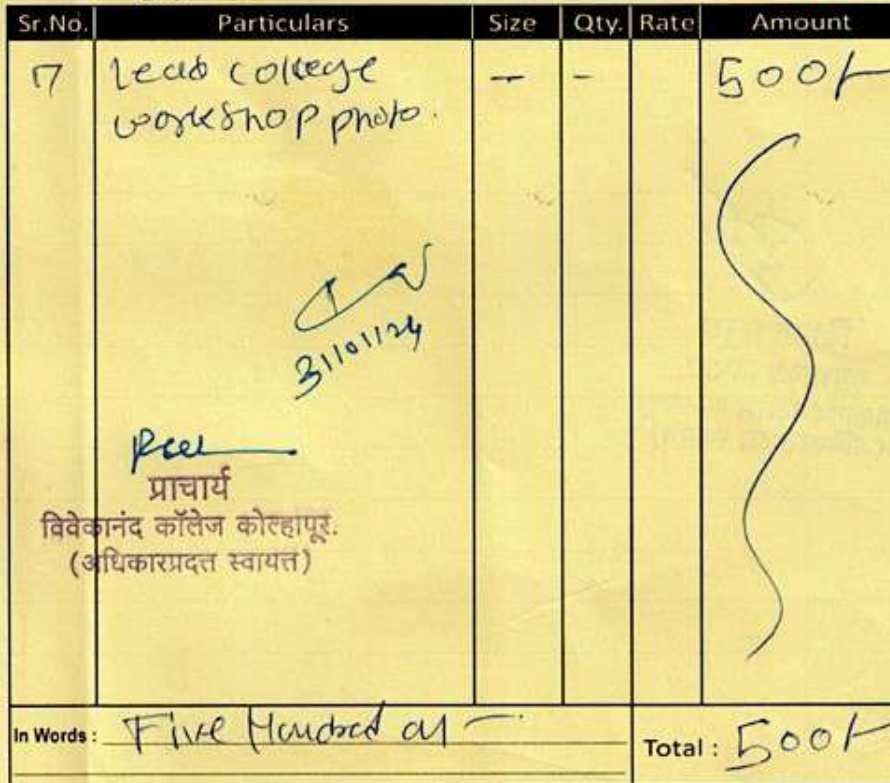 Sr.No. Particulars Size Qty. Rate Amount
Lead college - - 500/-
workshop photo.
31/01/24
प्राचार्य
विवेकानंद कॉलेज कोल्हापूर.
(अधिकारप्रदत्त स्वायत्त)
In Words : Five Hundred
Total : 500/-